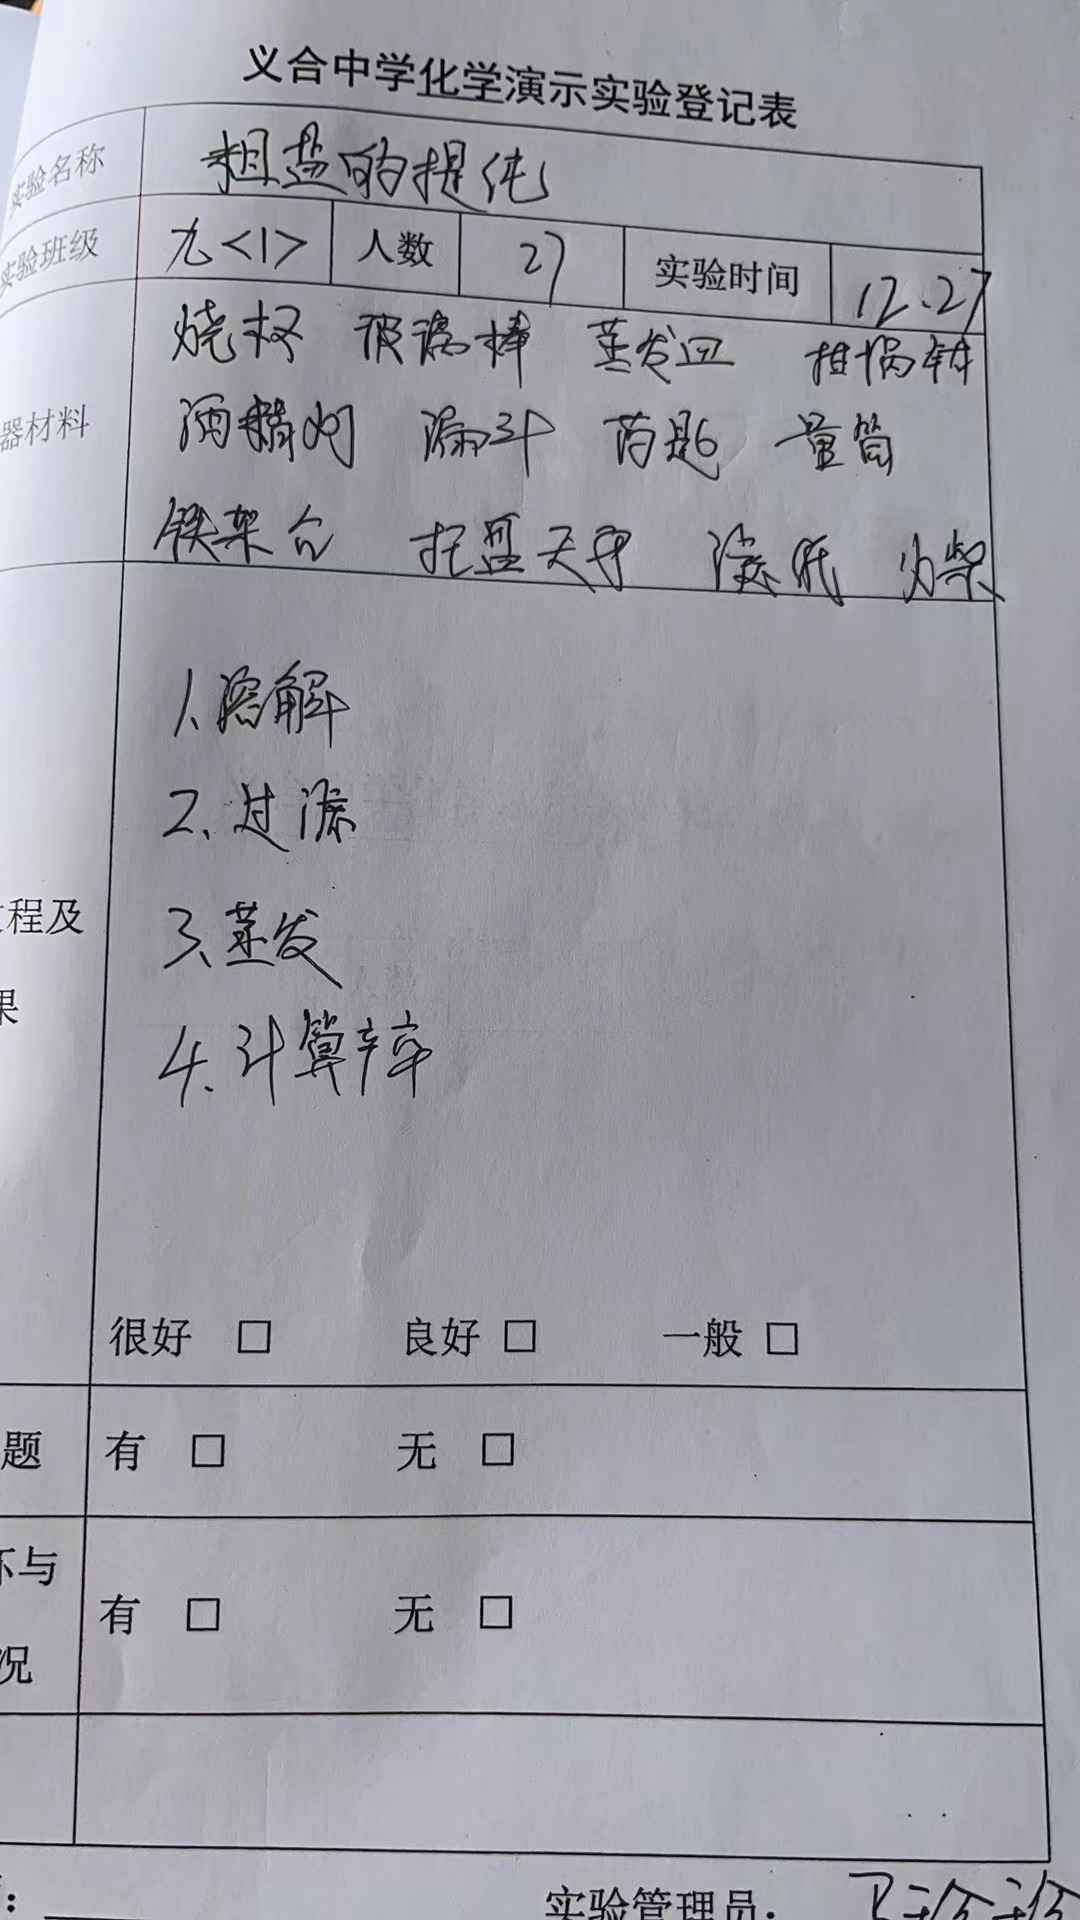 义合中学化学演示实验登记表
实验名称 粗盐的提纯
实验班级 九<1> 人数 27 实验时间 12.27
烧杯 玻璃棒 蒸发皿 坩埚钳
器材料 酒精灯 漏斗 药匙 量筒
铁架台 托盘天平 滤纸 火柴
1.溶解
2.过滤
3.蒸发
程及
果
4.计算产率
很好 □ 良好 □ 一般 □
题 有 □ 无 □
坏与
有 □ 无 □
况
实验管理员: